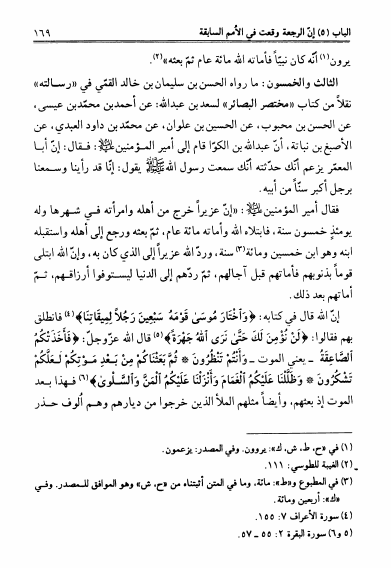 الباب (٥) إنّ الرجعة وقعت في الأمم السابقة ١٦٩
يرون(١) أنّه كان نبيّاً فأماته الله مائة عام ثمّ بعثه»(٢).
الثالث والخمسون: ما رواه الحسن بن سليمان بن خالد القمّي في «رسالته»
نقلاً من كتاب «مختصر البصائر» لسعد بن عبدالله: عن أحمد بن محمّد بن عيسى،
عن الحسن بن محبوب، عن الحسين بن علوان، عن محمّد بن داود العبدي، عن
الأصبغ بن نباتة، أنّ عبدالله بن الكوّا قام إلى أمير المؤمنين ﷺ: فقال: إنّ أبا
المعمّر يزعم أنّك حدّثته أنّك سمعت رسول الله ﷺ يقول: إنّا قد رأينا وسمعنا
برجل أكبر سنّاً من أبيه.
فقال أمير المؤمنين ﷺ: «إنّ عزيراً خرج من أهله وامرأته في شهرها وله
يومئذٍ خمسون سنة، فابتلاه الله وأماته مائة عام، ثمّ بعثه ورجع إلى أهله واستقبله
ابنه وهو ابن خمسين ومائة(٣) سنة، وردّ الله عزيراً إلى الذي كان به، وإنّ الله ابتلى
قوماً بذنوبهم فأماتهم قبل آجالهم، ثمّ ردّهم إلى الدنيا ليستوفوا أرزاقهم، ثمّ
أماتهم بعد ذلك.
إنّ الله قال في كتابه: ﴿وَاخْتَارَ مُوسَى قَوْمَهُ سَبْعِينَ رَجُلاً لِمِيقَاتِنَا﴾(٤) فانطلق
بهم فقالوا: ﴿لَنْ نُؤْمِنَ لَكَ حَتَّى نَرَى اللهَ جَهْرَةً﴾(٥) قال الله عزّ وجلّ: ﴿فَأَخَذَتْكُمُ
الصَّاعِقَةُ ـ يعني الموت ـ وَأَنْتُمْ تَنْظُرُونَ * ثُمَّ بَعَثْنَاكُمْ مِنْ بَعْدِ مَوْتِكُمْ لَعَلَّكُمْ
تَشْكُرُونَ * وَظَلَّلْنَا عَلَيْكُمُ الْغَمَامَ وَأَنْزَلْنَا عَلَيْكُمُ الْمَنَّ وَالسَّلْوَى﴾(٦) فهذا بعد
الموت إذ بعثهم، وأيضاً مثلهم الملأ الذين خرجوا من ديارهم وهم أُلوف حذر
(١) في «ح، ط، ش، ك»: يروون. وفي المصدر: يزعمون.
(٢) الغيبة للطوسي: ١١١.
(٣) في المطبوع و«ط»: مائة، وما في المتن أثبتناه من «ح، ش» وهو الموافق للمصدر. وفي
«ك»: أربعين ومائة.
(٤) سورة الأعراف ٧: ١٥٥.
(٥ و٦) سورة البقرة ٢: ٥٥ ـ ٥٧.